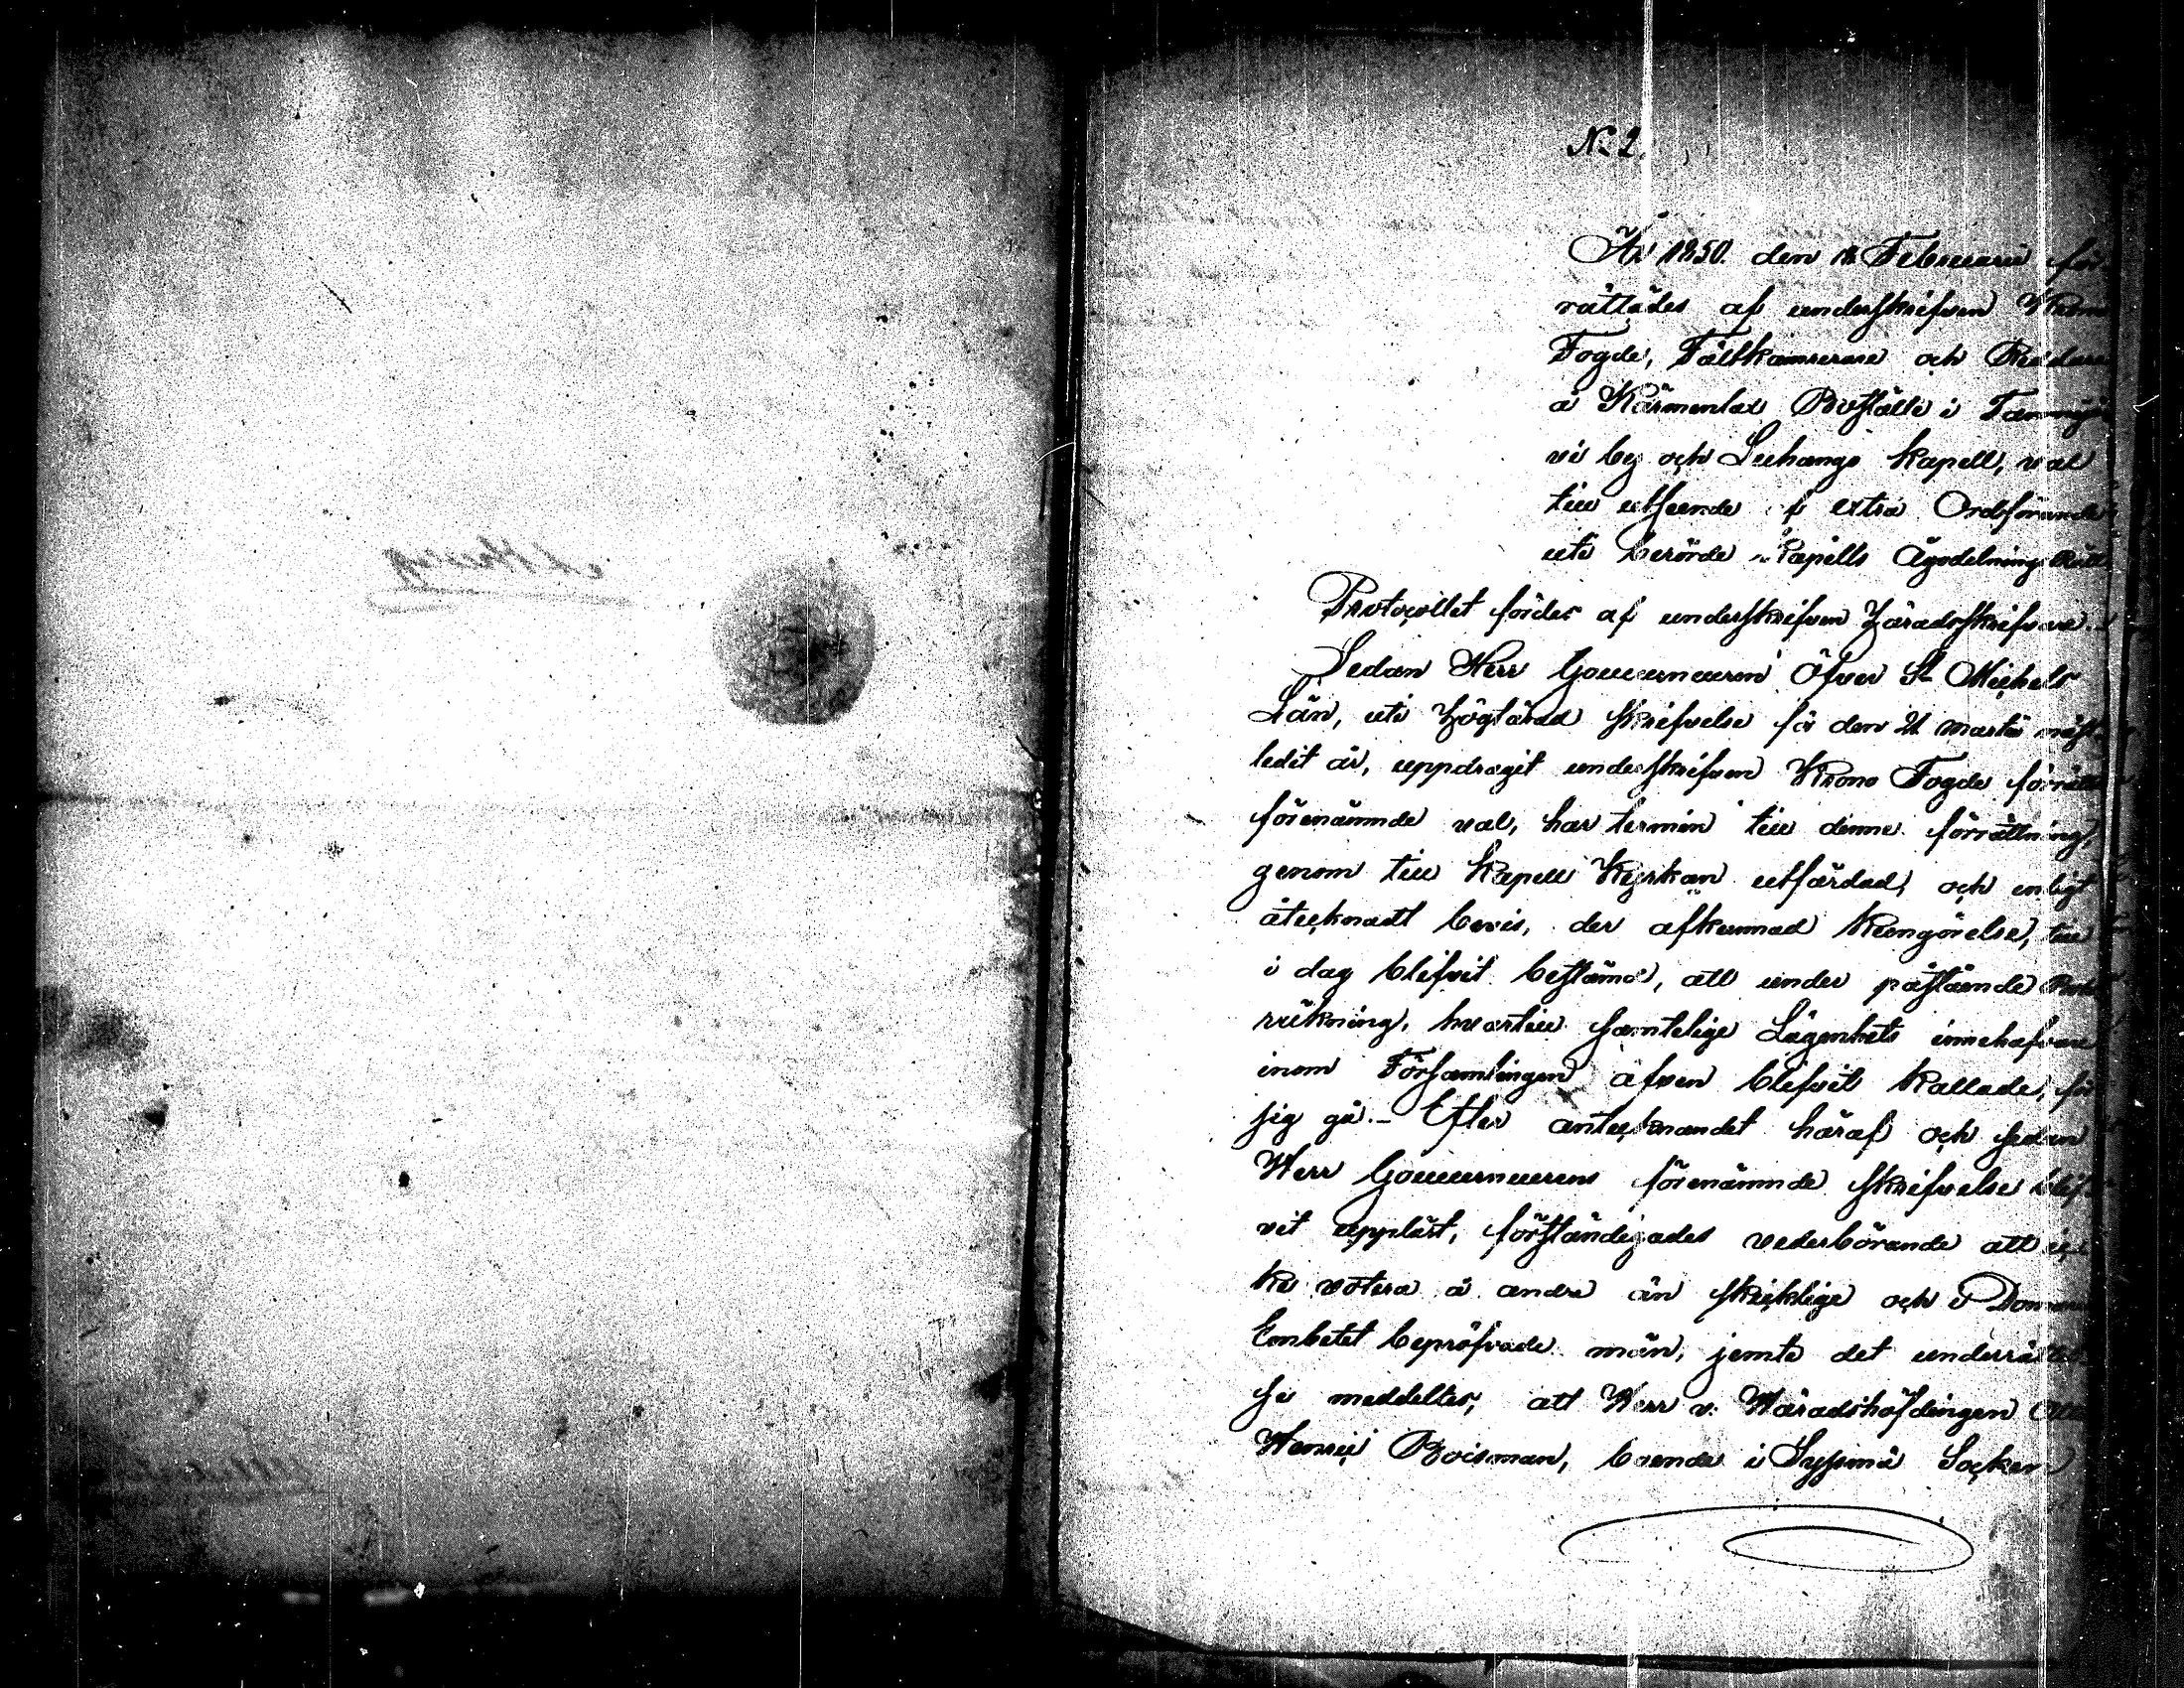 N. 2.
År 1850. den 18 Februarii för-
rättades af underskrifven Krono
Fogde, Fältkamrerare och Riddare
å Kärmenlax Boställe i Tammijär-
vi by och Luhango Kapell, val
till utseende af extra Ordförande
uti berörde Kapells Ägodelnings Rätt
Protocollet fördes af underskrifven Häradsskrifvare.
Sedan Herr Gouverneuren Öfver St Michels
Län, uti högtärad skrifvelse för den 21 martii näst-
ledit år, uppdragit underskrifven Krono Fogde förrätta
förenämnde val, har termin till denne förrättning,
genom till Kapell Kyrkan utfärdad, och enligt
åtecknadt bevis, der afkunnad Kungörelse, till
i dag blifvit bestämd, att under påstående
räkning, hvartill samtelige Lägenhets innehafvare
inom Församlingen äfven blifvit kallade, för
sig gå.- Efter antecknandet häraf och sedan
Herr Gouverneurens förenämnde skrifvelse blif-
vit uppläst, förständigades vederbörande att ic-
ke votera å andra än skicklige och i Domare
Embetet bepröfvade män, jemte det underrättel-
se meddeltes, att Herr v. Häradshöfdingen
Henric Boisman, boende i Sysmä Socken